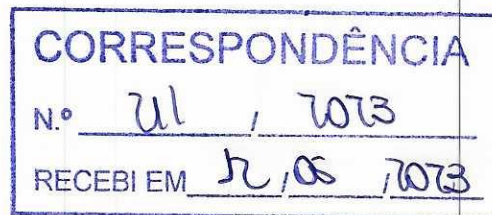 CORRESPONDÊNCIA
N.º / 2023
RECEBI EM 12 / 05 / 2023